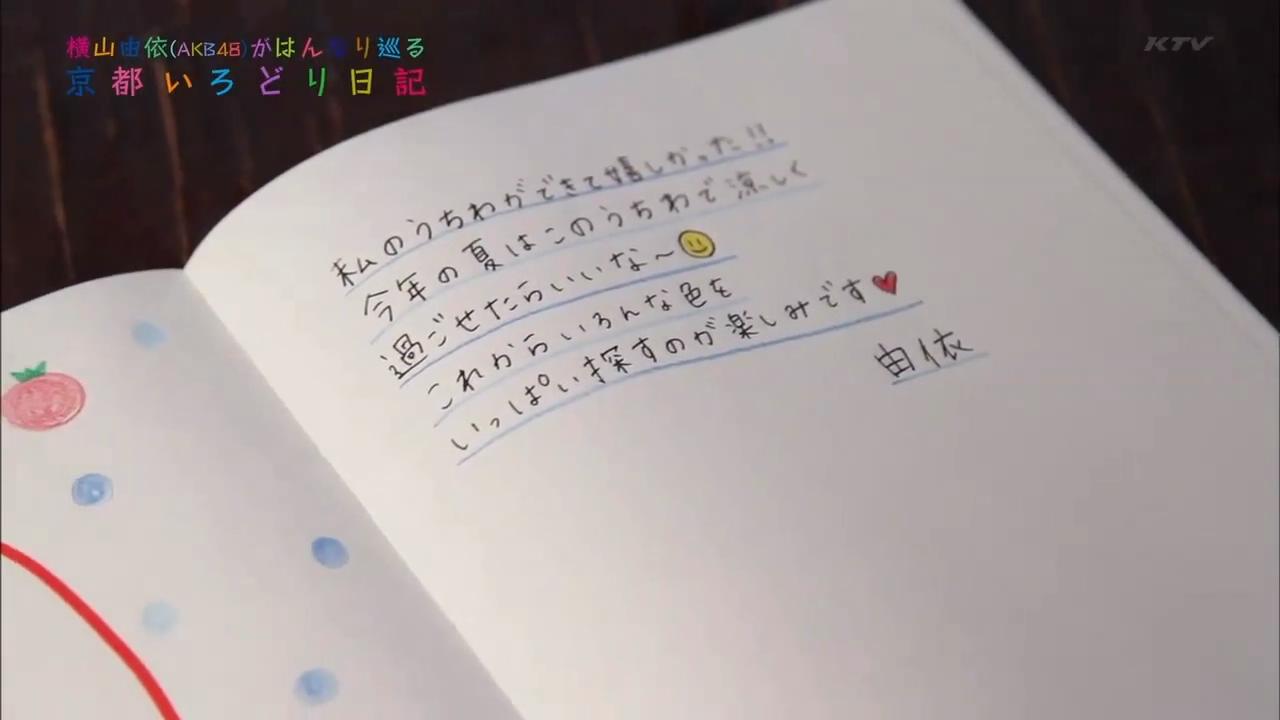 横山由依(AKB48)がはんなり巡る
京都いろどり日記
KTV
私のうちわができて嬉しかった!!
今年の夏はこのうちわで涼しく
過ごせたらいいな〜
これからいろんな色を
いっぱい探すのが楽しみです
由依